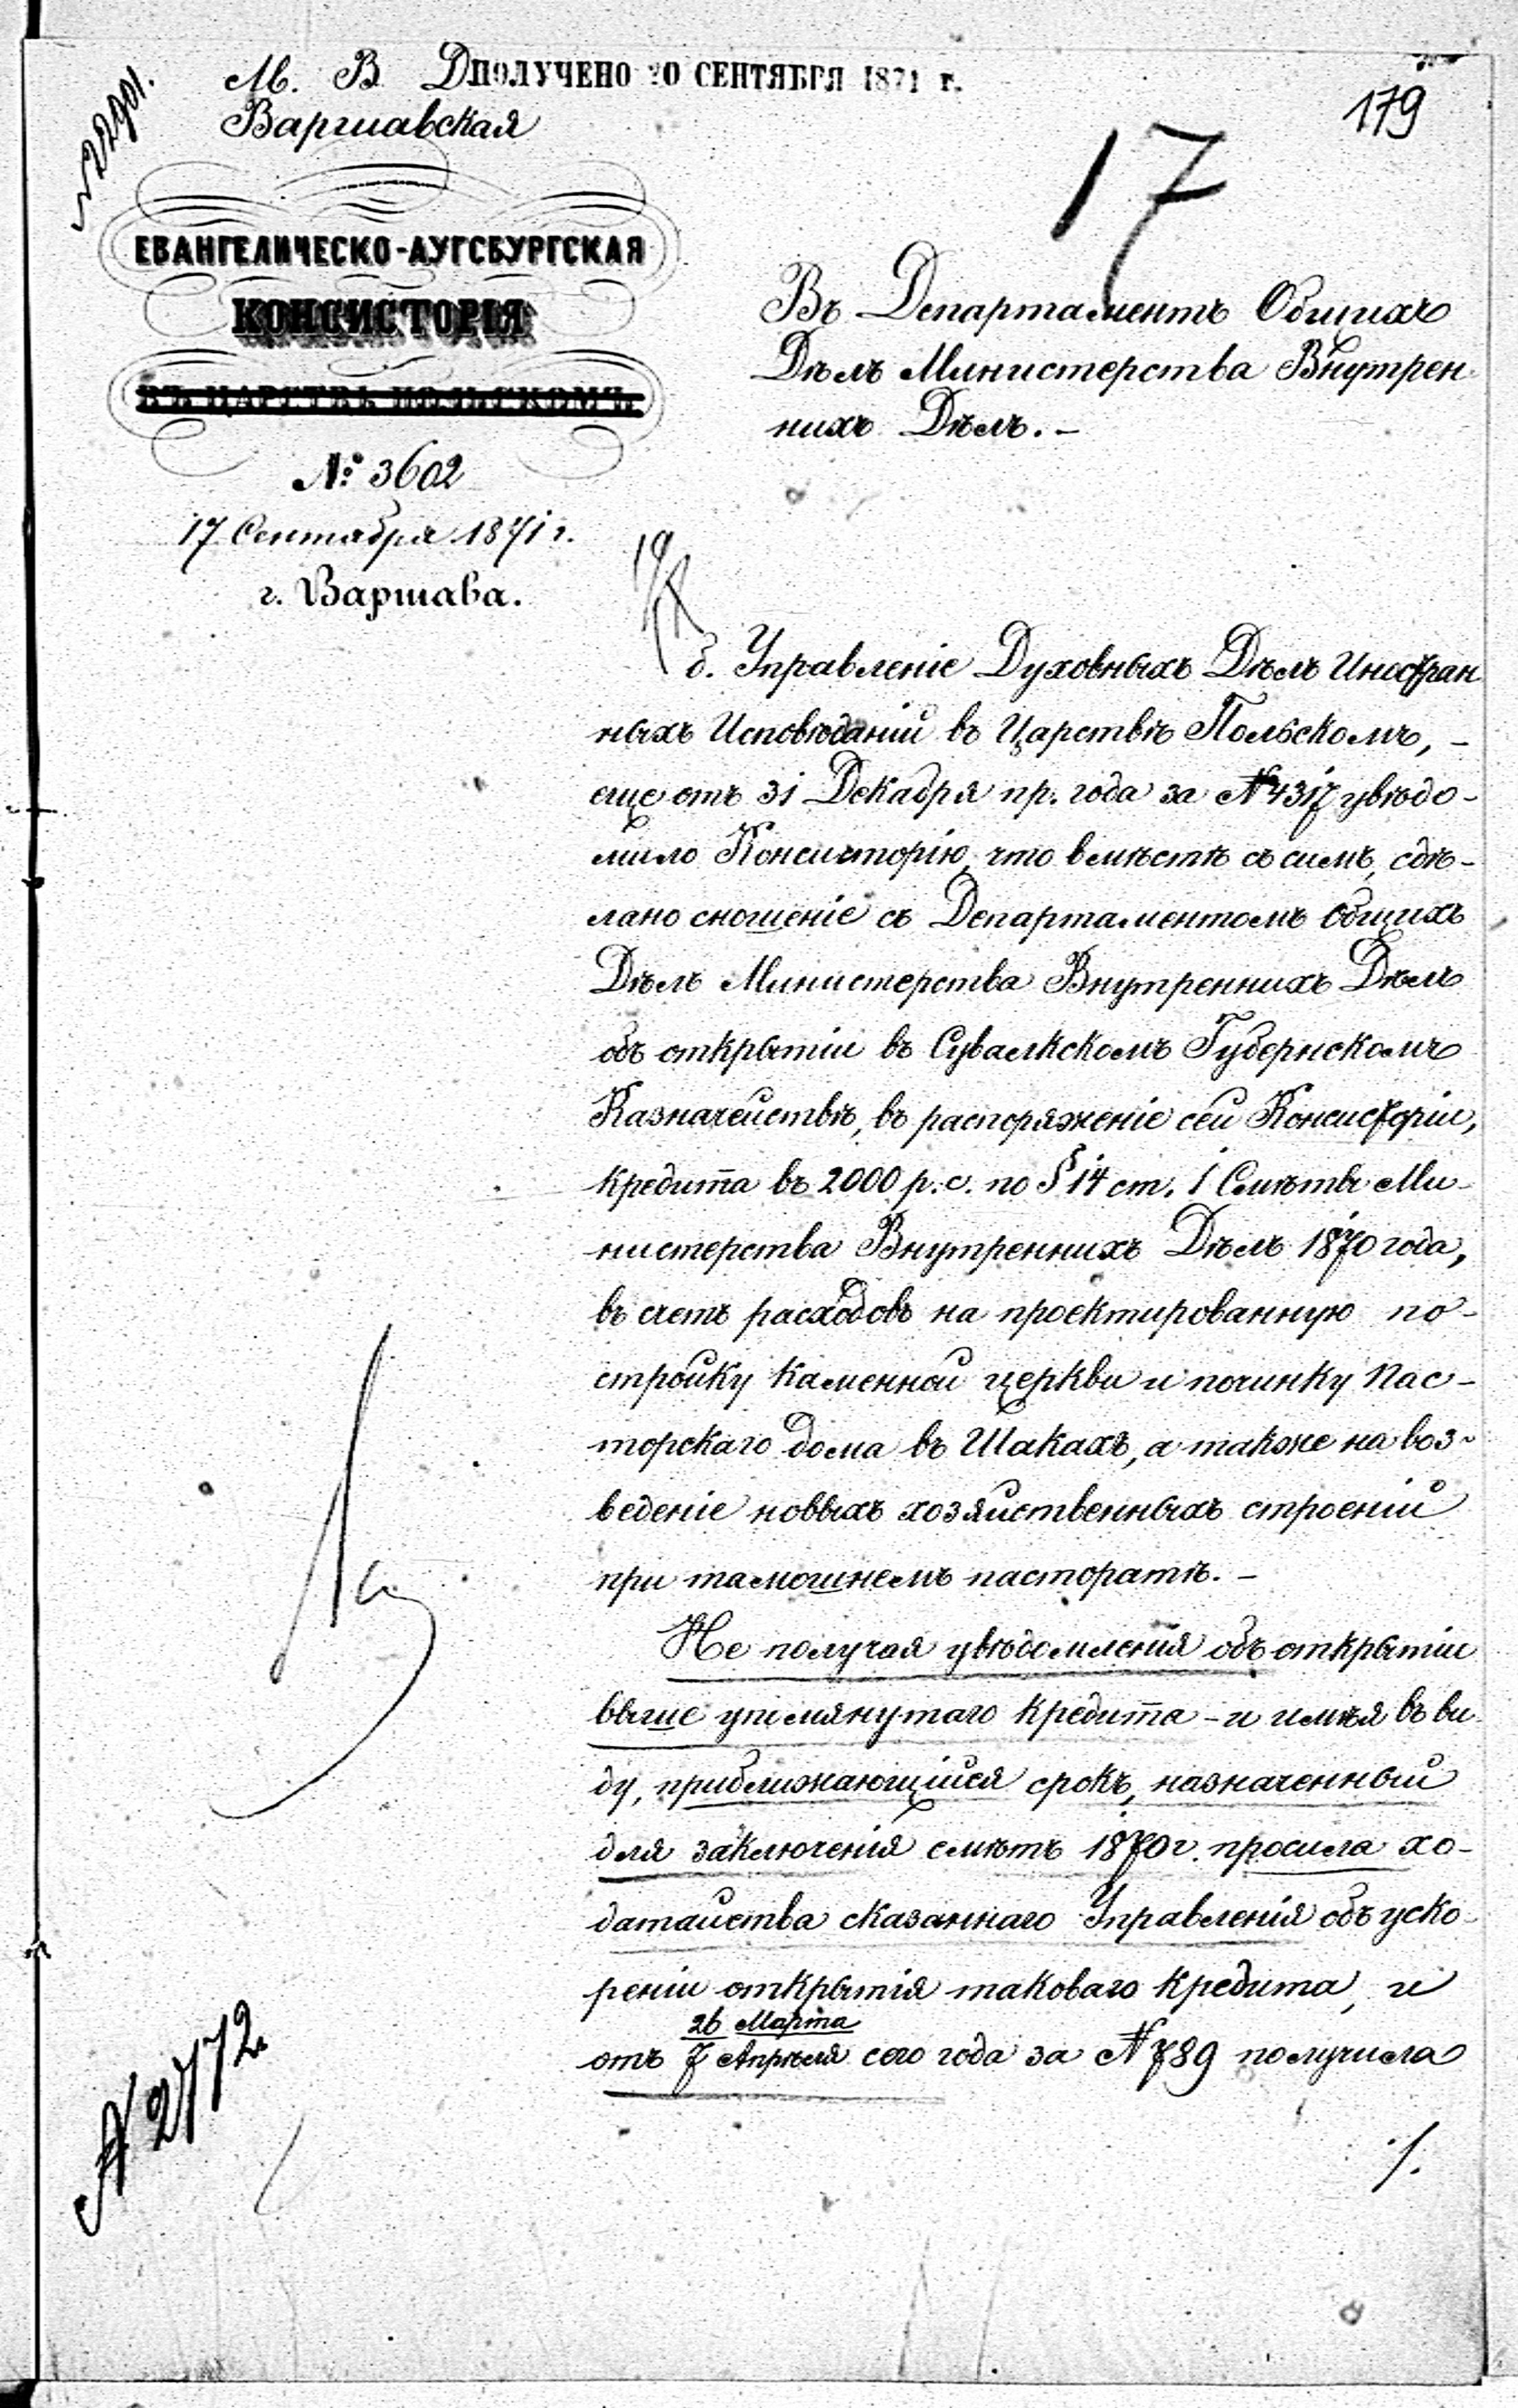 М. В. Д. ПОЛУЧЕНО 20 СЕНТЯБРЯ 1871 г.
179
Варшавская
17
ЕВАНГЕЛИЧЕСКО-АУГСБУРГСКАЯ
КОНСИСТОРІЯ
ВЪ ЦАРСТВѢ ПОЛЬСКОМЪ
№ 3602
17 Сентября 1871 г.
г. Варшава.
Въ Департаментъ Общихъ
Дѣлъ Министерства Внутрен-
нихъ Дѣлъ. –
б. Управленіе Духовныхъ Дѣлъ Иностран
ныхъ Исповѣданій въ Царствѣ Польскомъ, –
еще отъ 31 Декабря пр. года за № 4317 увѣдо-
мило Консисторію, что вмѣстѣ съ симъ, сдѣ-
лано сношеніе съ Департаментомъ Общихъ
Дѣлъ Министерства Внутреннихъ Дѣлъ
объ открытіи въ Сувалкскомъ Губернскомъ
Казначействѣ, въ распоряженіе сей Консисторіи,
кредита въ 2000 р. с. по § 14 ст. 1 Смѣты Ми-
нистерства Внутреннихъ Дѣлъ 1870 года,
въ счетъ расходовъ на проектированную по-
стройку каменной церкви и починку Пас-
торскаго дома въ Шакахъ, а также на воз-
веденіе новыхъ хозяйственныхъ строеній
при тамошнемъ пасторатѣ. –
Не получая увѣдомленія объ открытіи
выше упомянутаго кредита – и имѣя въ ви-
ду, приближающійся срокъ, назначенный
для заключенія смѣтъ 1870 г. просила хо-
датайства сказаннаго Управленія объ уско-
реніи открытія таковаго кредита, и
26 Марта
отъ 7 Апрѣля сего года за № 789 получила
№ 2772
./.